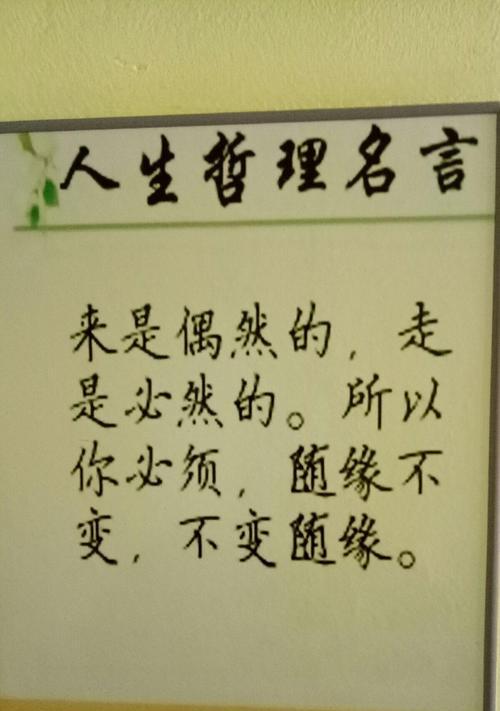 人生哲理名言
来是偶然的，走
是必然的。所以
你必须，随缘不
变，不变随缘。